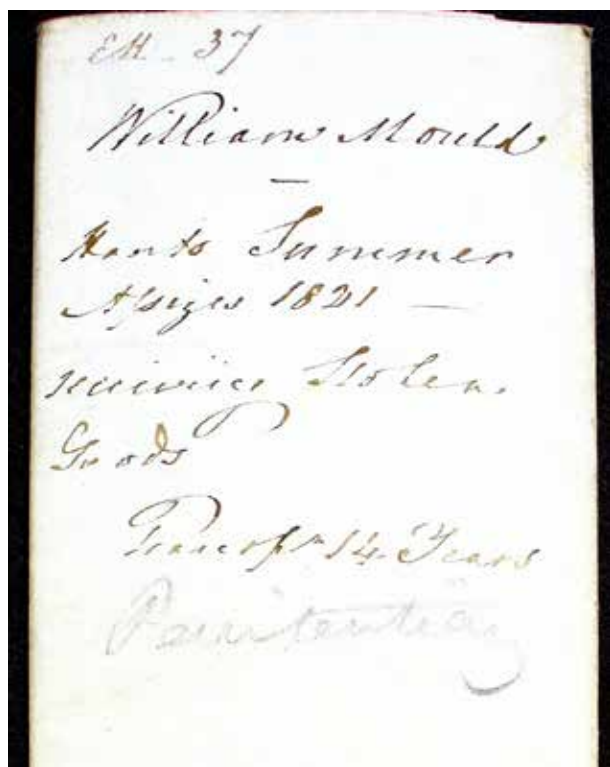 EM - 37
William Mould
—
Hants Summer
Assizes 1821 —
receiving Stolen
Goods
Transpn 14 Years
Penitentiary